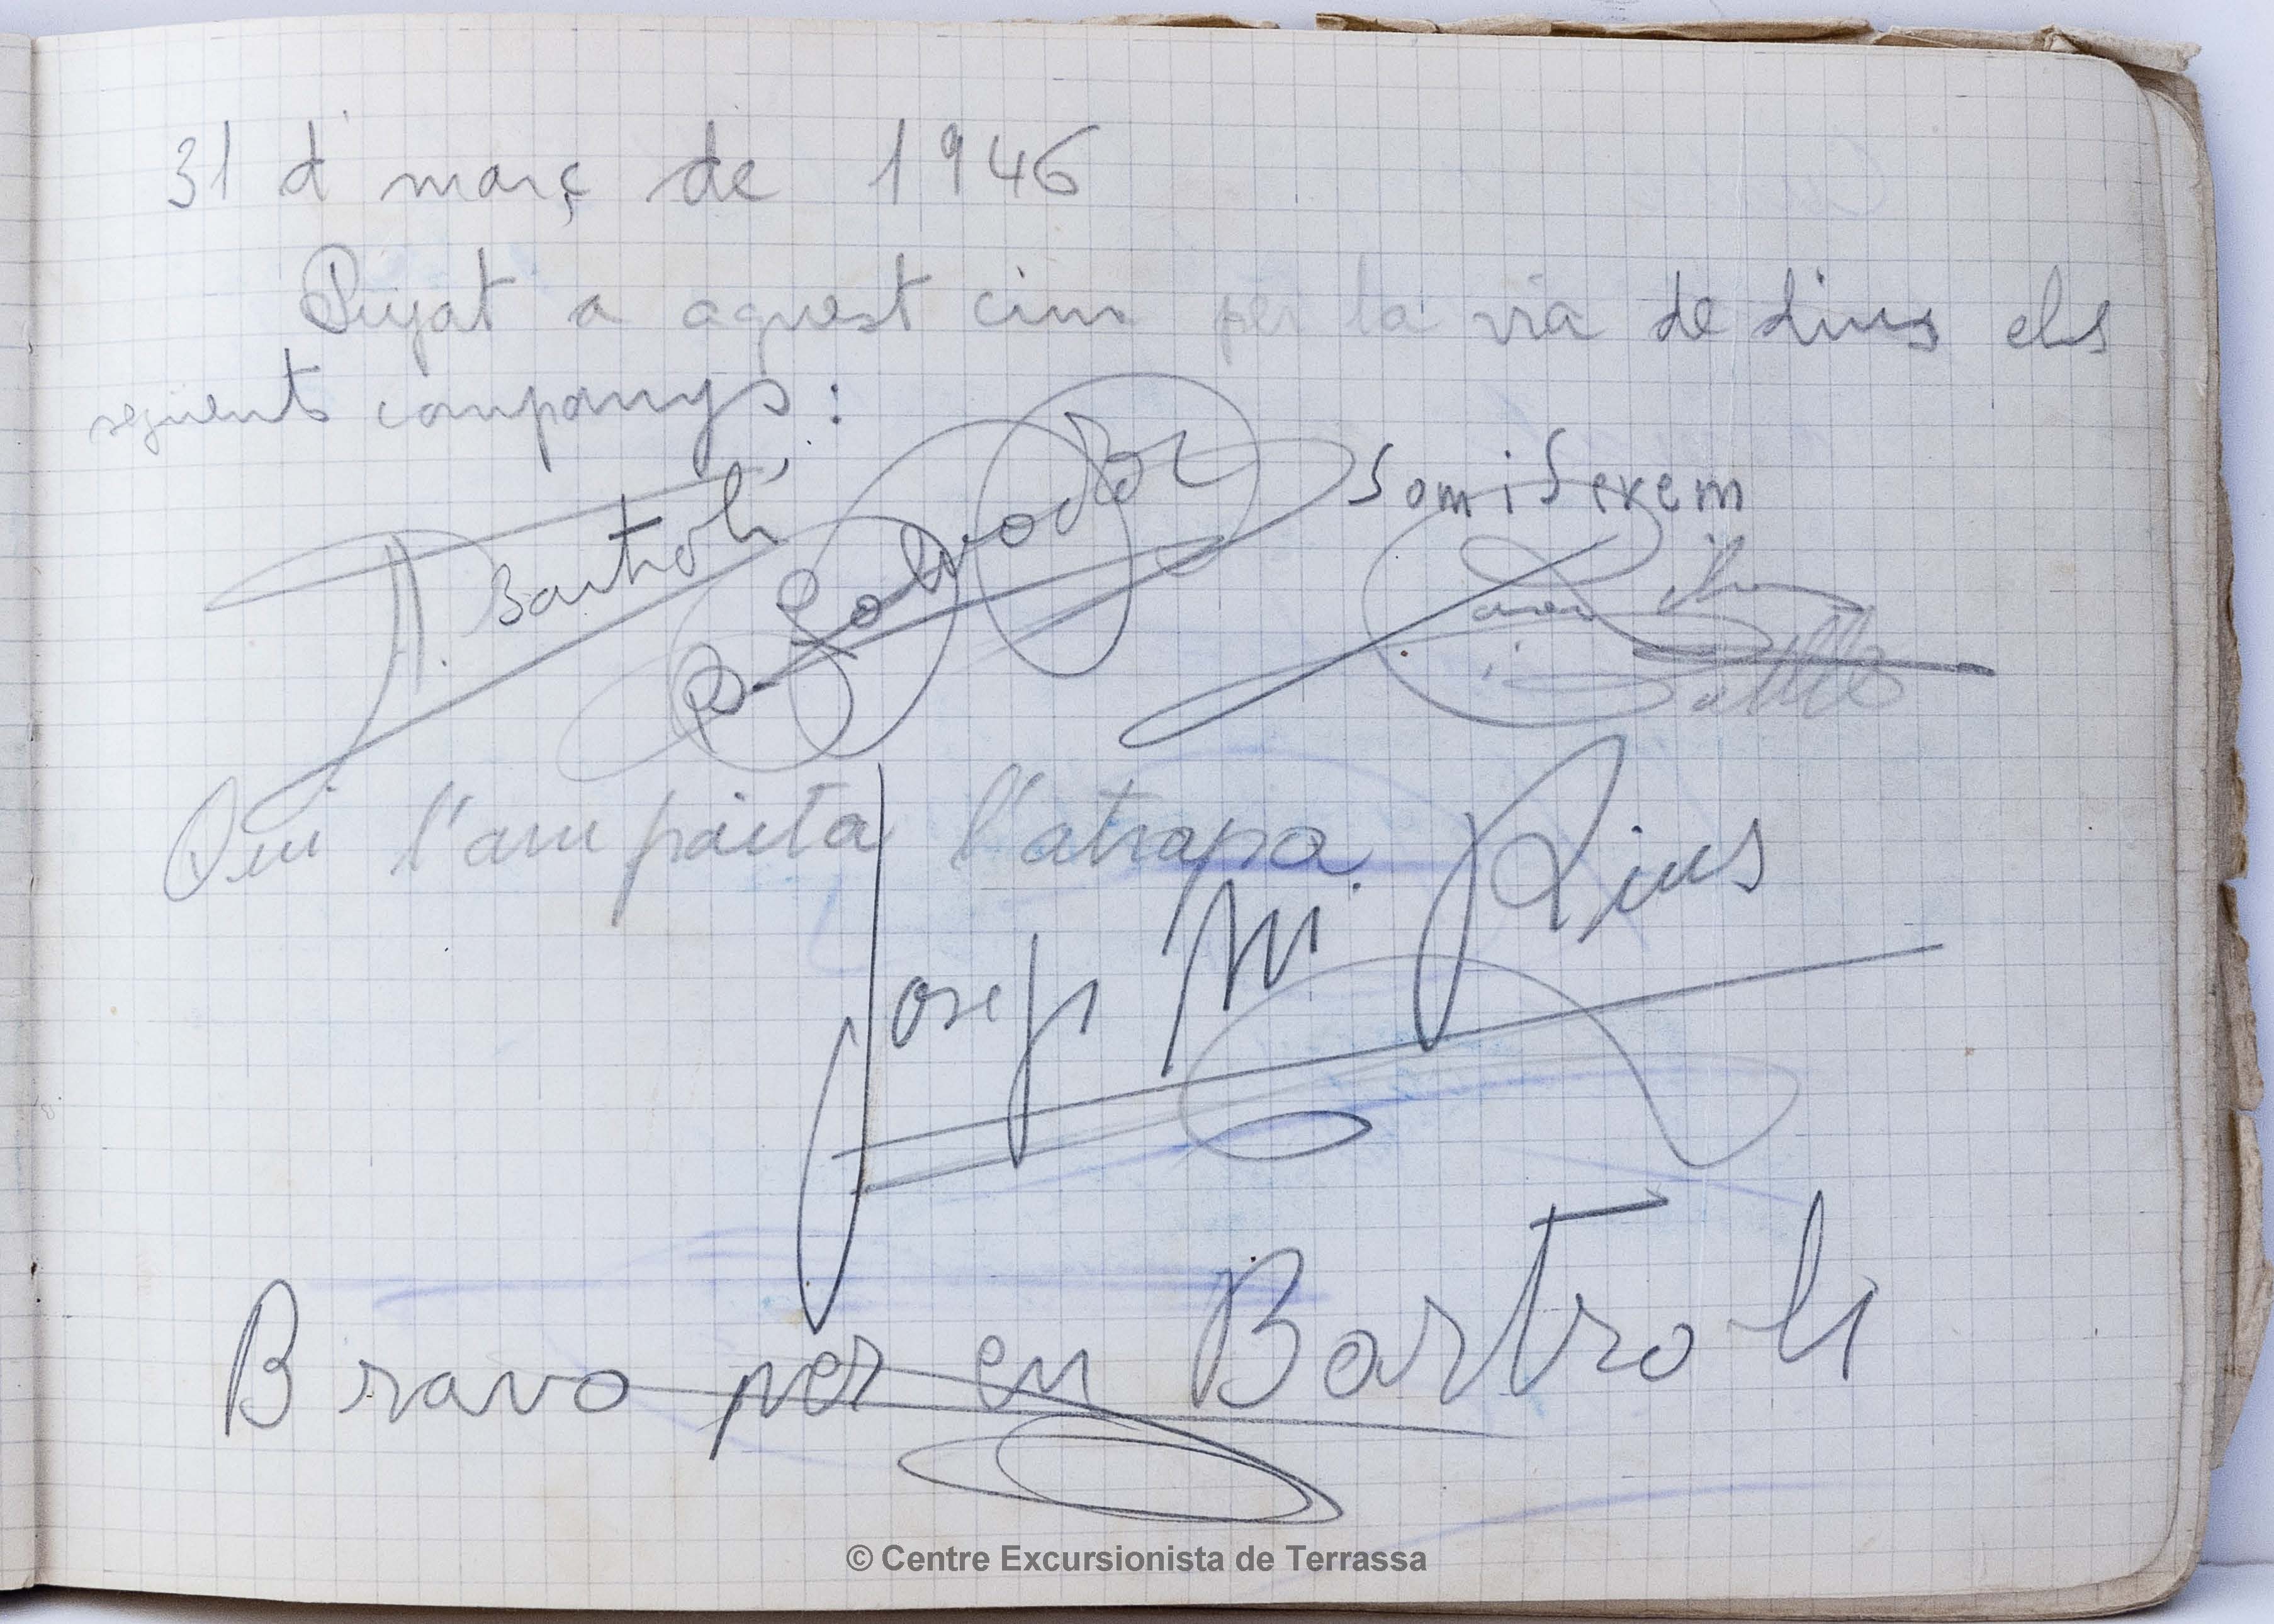 31 d' març de 1946
Pujat a aquest cim per la via de dins els
seguents companys:
A. Bartroli
Salvador
Som i Serem
Qui l'ampaita l'atrapa.
Josep M. Rius
Bravo per en Bartroli
© Centre Excursionista de Terrassa